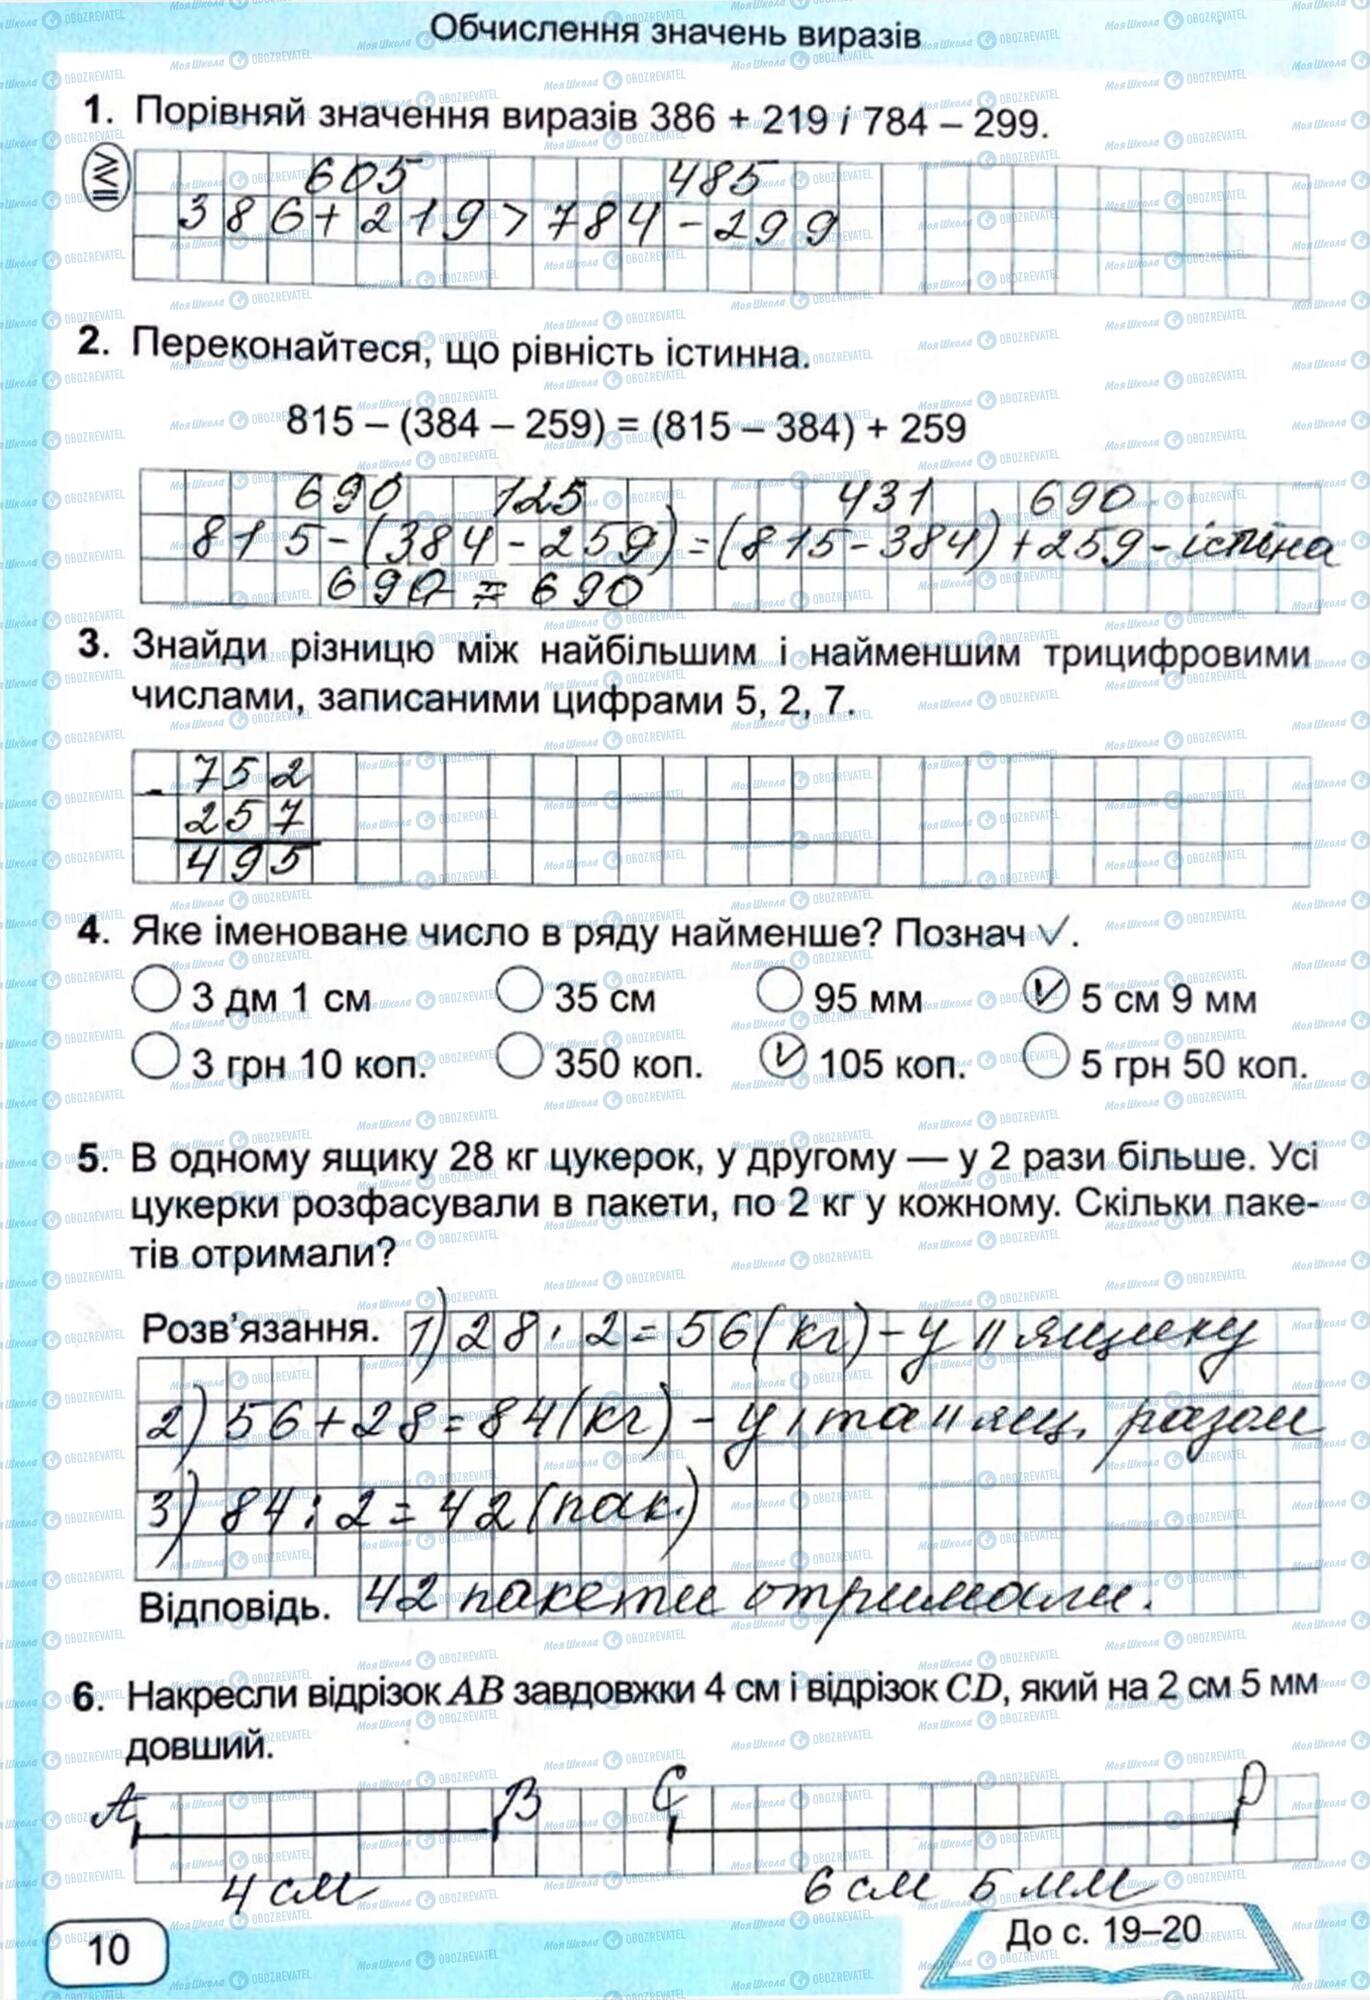 Обчислення значень виразів
1. Порівняй значення виразів 386 + 219 і 784 – 299.
605 485
386+219>784-299
2. Переконайтеся, що рівність істинна.
815 – (384 – 259) = (815 – 384) + 259
690 125 431 690
815-(384-259)=(815-384)+259-істина
690 = 690
3. Знайди різницю між найбільшим і найменшим трицифровими
числами, записаними цифрами 5, 2, 7.
- 752
257
495
4. Яке іменоване число в ряду найменше? Познач ✓.
3 дм 1 см 35 см 95 мм ✓ 5 см 9 мм
3 грн 10 коп. 350 коп. ✓ 105 коп. 5 грн 50 коп.
5. В одному ящику 28 кг цукерок, у другому — у 2 рази більше. Усі
цукерки розфасували в пакети, по 2 кг у кожному. Скільки паке-
тів отримали?
Розв'язання. 1) 28 · 2 = 56 (кг) - у II ящику
2) 56 + 28 = 84 (кг) - у I та II ящ. разом
3) 84 : 2 = 42 (пак.)
Відповідь. 42 пакети отримали.
6. Накресли відрізок AB завдовжки 4 см і відрізок CD, який на 2 см 5 мм
довший.
A B C D
4 см 6 см 5 мм
10 До с. 19–20
МояШкола OBOZREVATEL